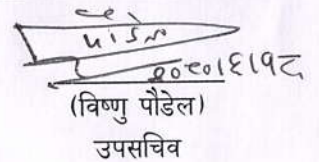 पौडेल
२०८०।६।१८
(विष्णु पौडेल)
उपसचिव